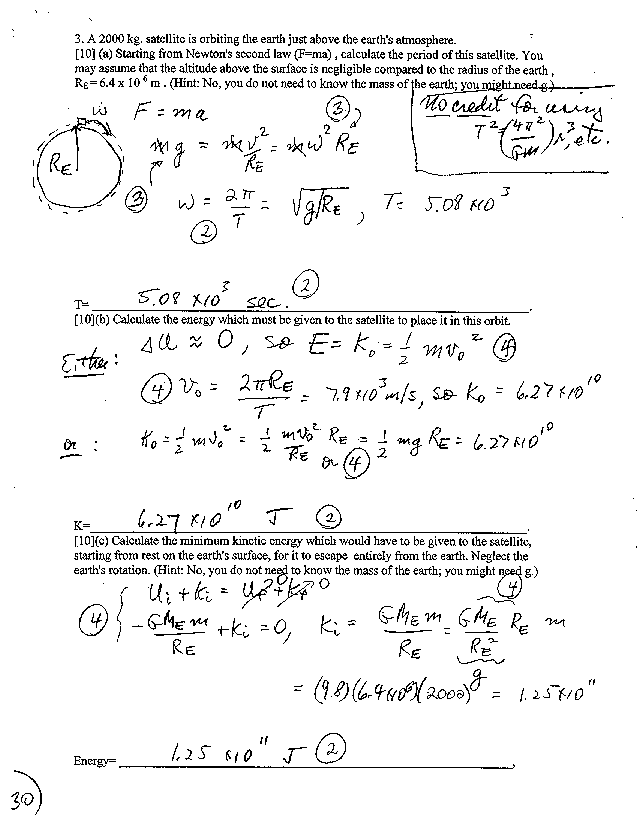 3. A 2000 kg. satellite is orbiting the earth just above the earth's atmosphere.
[10] (a) Starting from Newton's second law (F=ma) , calculate the period of this satellite. You
may assume that the altitude above the surface is negligible compared to the radius of the earth ,
R_E= 6.4 x 10^6 m . (Hint: No, you do not need to know the mass of the earth; you might need g.)
No credit for using
T² = (4π²/GM) r³, etc.
ω F = ma (3)
R_E
mg = mv²/R_E = mω² R_E
(3) ω = 2π/T = √(g/R_E) , T= 5.08 x10³
(2)
T= 5.08 x10³ sec. (2)
[10](b) Calculate the energy which must be given to the satellite to place it in this orbit.
Either: ΔU ≈ 0, so E = K₀ = ½ mv₀² (4)
(4) v₀ = 2πR_E/T = 7.9 x10³ m/s, so K₀ = 6.27 x10¹⁰
or : K₀ = ½ mv₀² = ½ mv₀²/R_E R_E = ½ mg R_E = 6.27 x10¹⁰
or (4)
K= 6.27 x10¹⁰ J (2)
[10](c) Calculate the minimum kinetic energy which would have to be given to the satellite,
starting from rest on the earth's surface, for it to escape entirely from the earth. Neglect the
earth's rotation. (Hint: No, you do not need to know the mass of the earth; you might need g.)
Ui + Ki = Uf⁰ + Kf⁰ (4)
(4) { -GM_E m/R_E + Ki = 0, Ki = GM_E m/R_E = GM_E/R_E² R_E m
g
= (9.8)(6.4x10⁶)(2000) = 1.25x10¹¹
Energy= 1.25 x10¹¹ J (2)
30